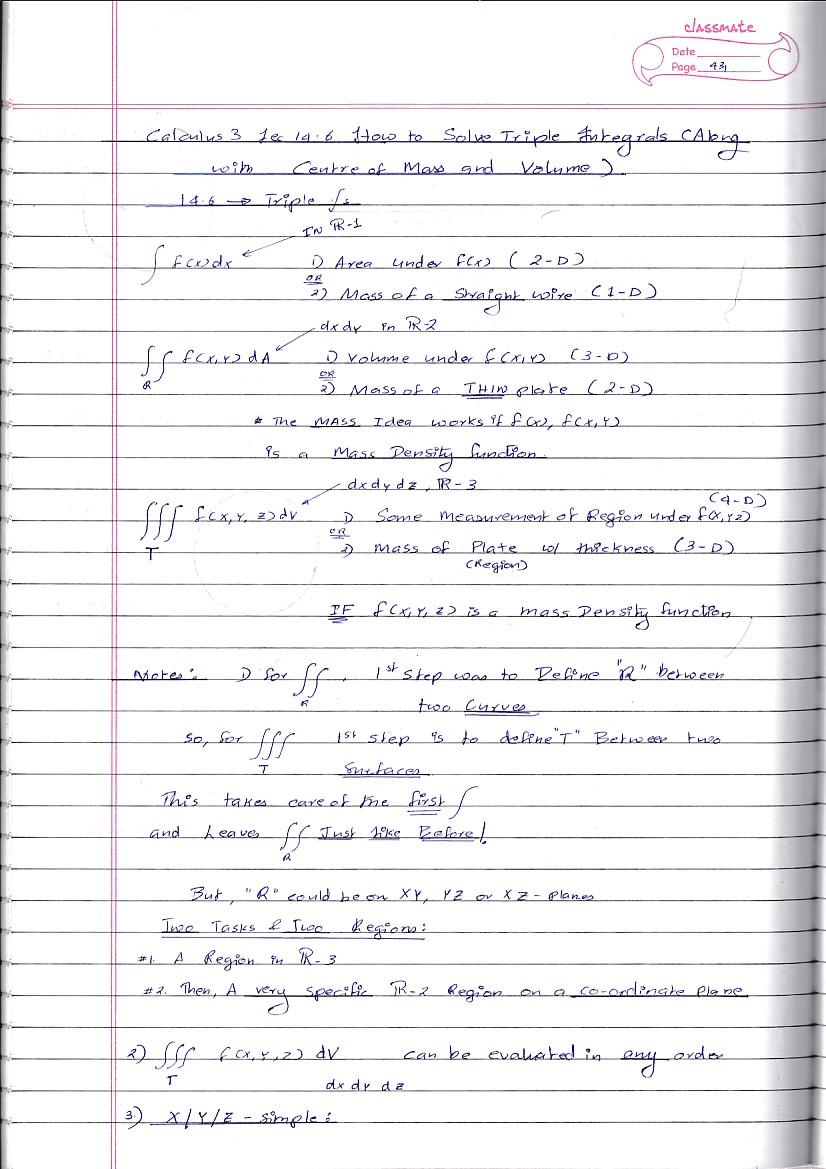 classmate
Date
Page 431
Calculus 3 Lec 14.6 How to Solve Triple Integrals (Along
with Centre of Mass and Volume)
14.6 → Triple ∫s
IN ℝ-1
∫ f(x)dx 1) Area under f(x) (2-D)
OR
2) Mass of a Straight wire (1-D)
dxdy in ℝ-2
∬ f(x,y) dA 1) Volume under f(x,y) (3-D)
R OR
2) Mass of a THIN plate (2-D)
* The MASS Idea works if f(x), f(x,y)
is a Mass Density function.
dxdydz, ℝ-3
(4-D)
∭ f(x,y,z)dv 1) Some measurement of Region under f(x,yz)
OR
T 2) Mass of Plate w/ thickness (3-D)
(Region)
IF f(x,y,z) is a mass Density function
Notes: 1) for ∬, 1st Step was to Define "R" between
R
two Curves
So, for ∭ 1st step is to define "T" Between two
T Surfaces
This takes care of the first ∫
and Leaves ∬ Just like Before!
R
But, "R" could be on XY, YZ or XZ-planes
Two Tasks & Two Regions:
#1. A Region in ℝ-3
#2. Then, A very specific ℝ-2 Region on a co-ordinate Plane
2) ∭ f(x,y,z) dV can be evaluated in any order
T dx dy dz
3) X/Y/Z - simple: